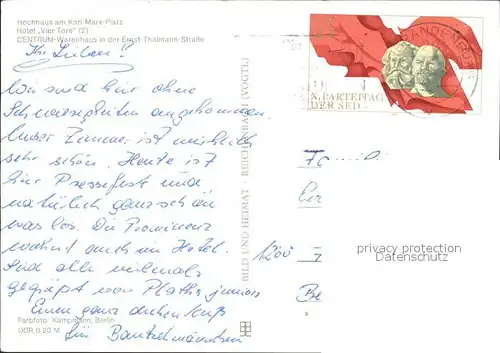 Hochhaus am Karl-Marx-Platz
Hotel „Vier Tore" (2)
CENTRUM-Warenhaus in der Ernst-Thälmann-Straße
Ihr Lieben!
Wir sind hier ohne
Schwierigkeiten angekommen.
Unser Zimmer ist wirklich
sehr schön. Heute ist
hier Pressefest und
natürlich ganz schön
was los. Die Prominenz
wohnt auch im Hotel.
Sind alle vielmals
gegrüßt von
Einen ganz dicken Kuß
für
Farbfoto: Kampmann, Berlin
DDR 0,20 M
BILD UND HEIMAT · REICHENBACH (VOGTL)
X. PARTEITAG
DER SED
1200
privacy protection
Datenschutz